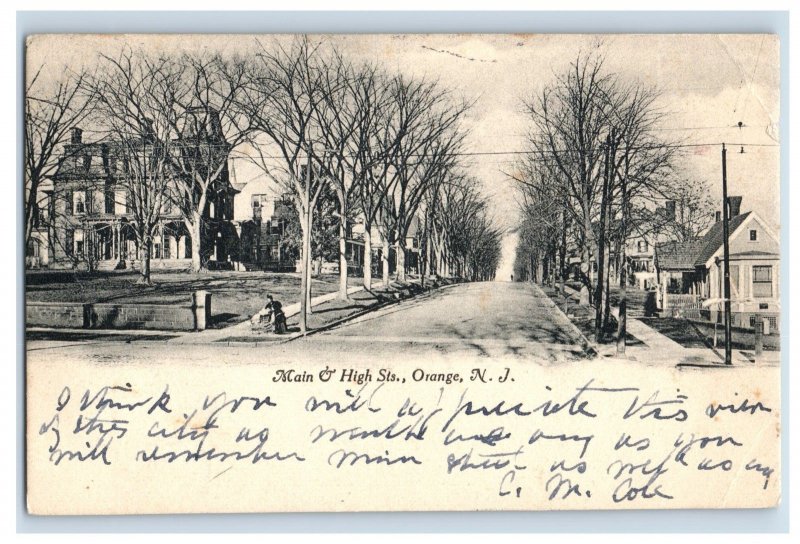 Main & High Sts., Orange, N. J.
I think you will appreciate this view
of this city as much as any as you
will remember main street as well as any
C. M. Cole